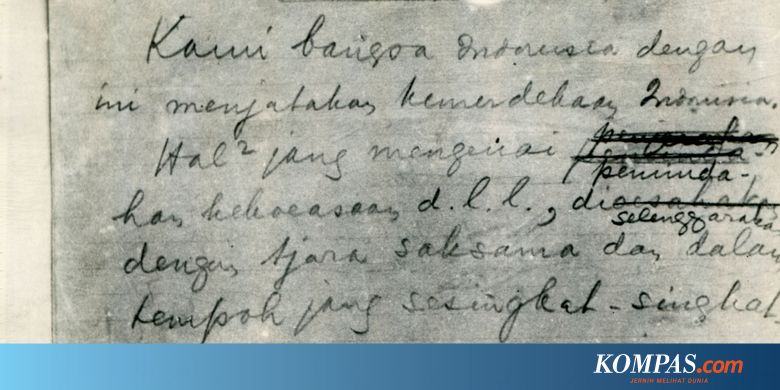 Kami bangsa Indonesia dengan
ini menjatakan kemerdekaan Indonesia.
Hal² jang mengenai
peminda-
han kekoeasaan d.l.l., dioesahakan
selenggarakan
dengan tjara saksama dan dalam
tempoh jang sesingkat-singkat
KOMPAS.com
JERNIH MELIHAT DUNIA